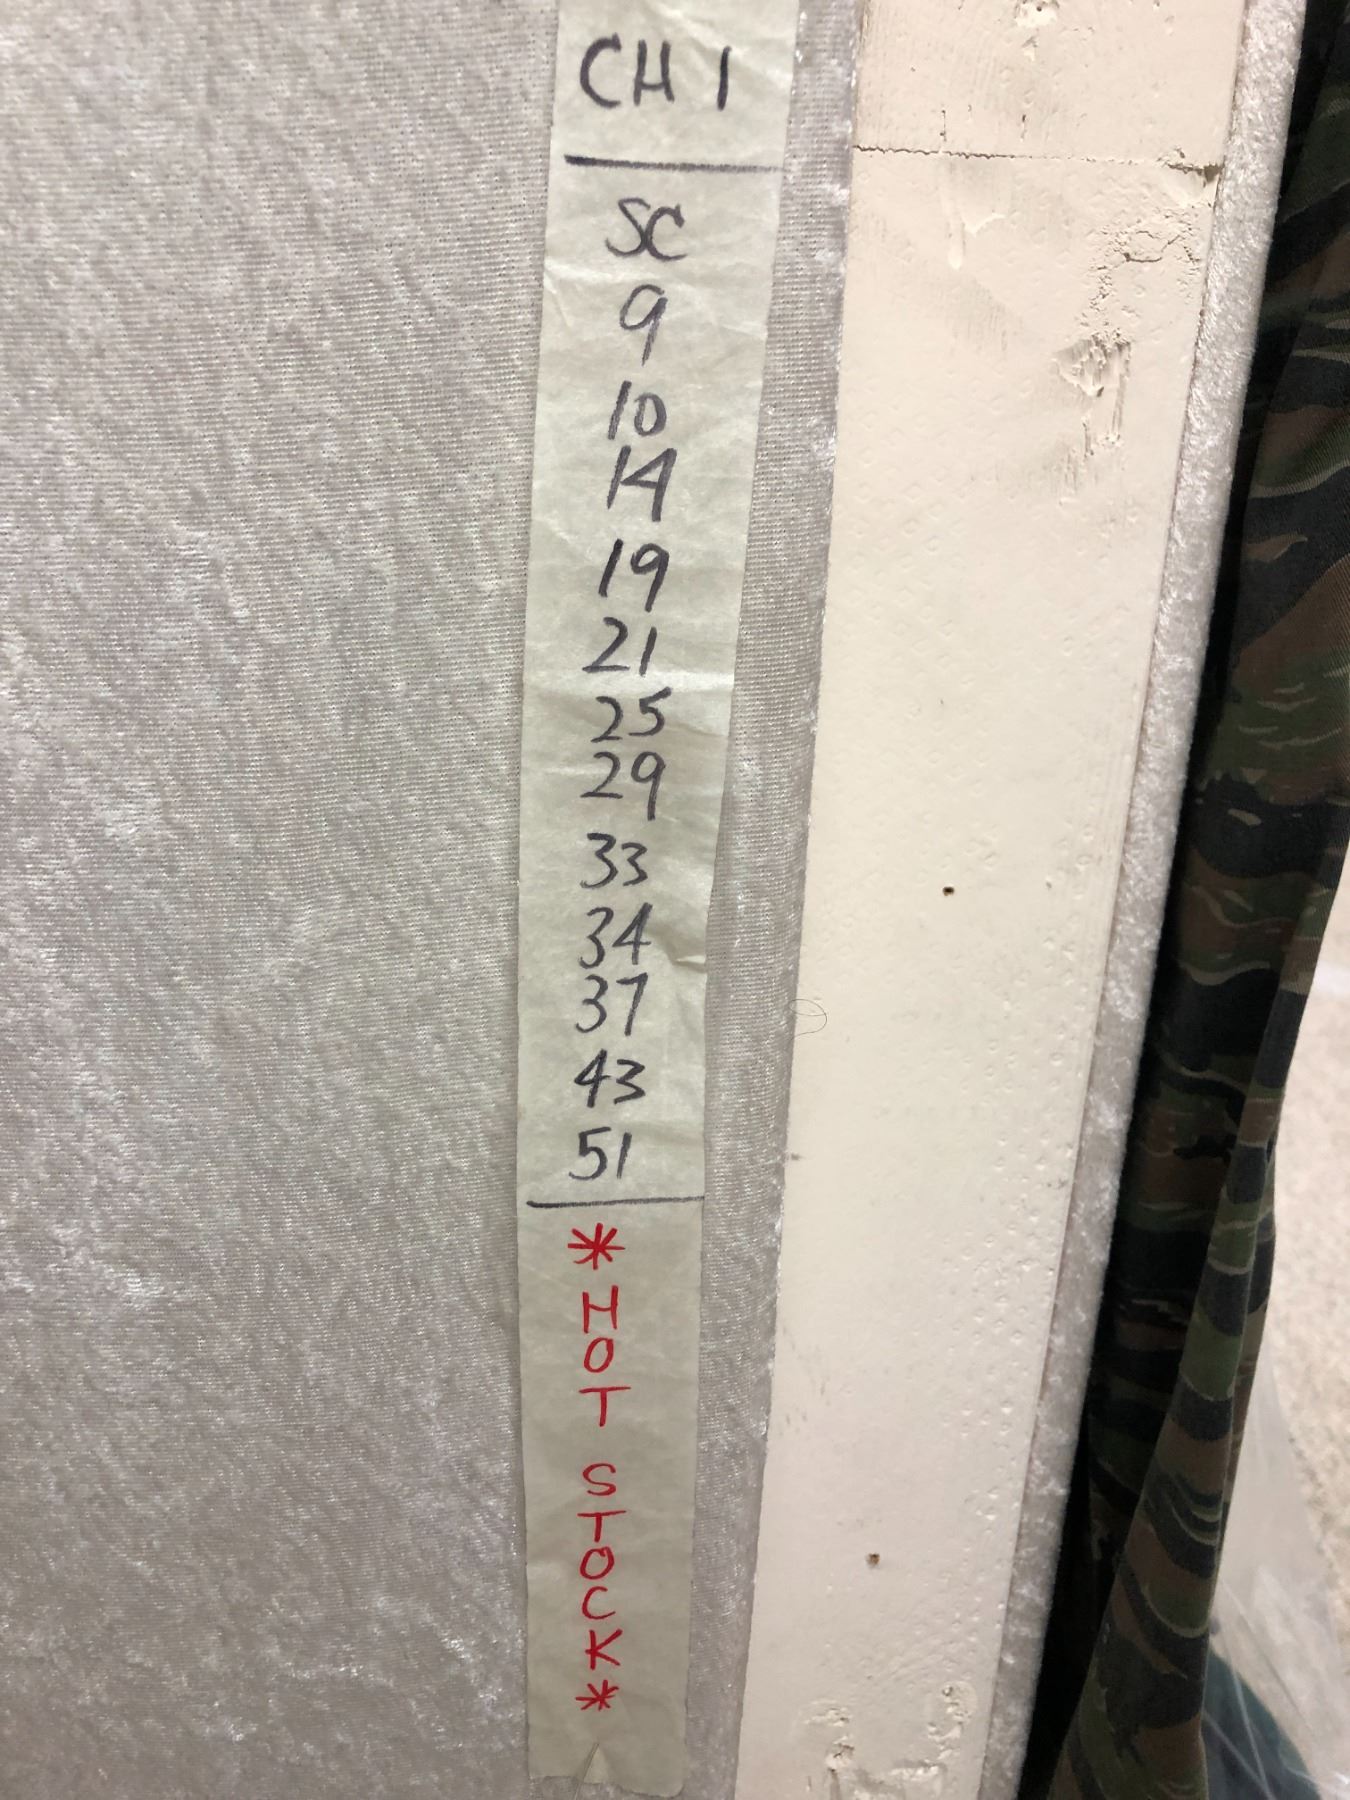 CH 1
SC
9
10
14
19
21
25
29
33
34
37
43
51
*HOT STOCK*